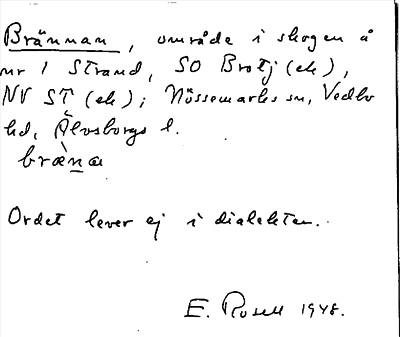 Brännan, område i skogen å
nr 1 Strand, SO Brotj (ek),
NV ST (ek); Nössemarks sn, Vedbo
hd, Älvsborgs l.
bræ̀na
Ordet lever ej i dialekten.
E. Rosell 1948.